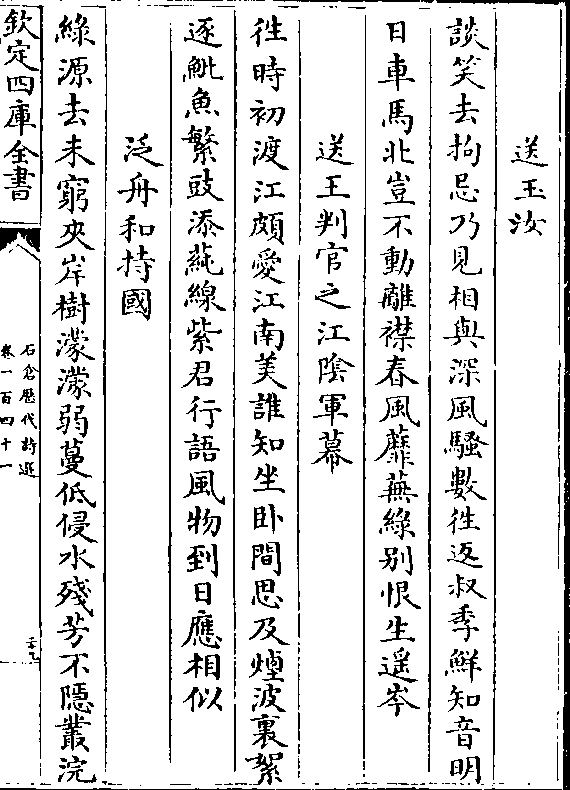 送玉汝
談笑去拘忌乃見相與深風騷數徃返叔季鮮知音明
日車馬北豈不動離襟春風蘼蕪綠别恨生遥岑
送王判官之江陰軍幕
徃時初渡江頗愛江南美誰知坐卧間思及煙波裏絮
逐魮魚繁豉添蒓線紫君行語風物到日應相似
泛舟和持國
綠源去未窮夾岸樹濛濛弱蔓低侵水殘芳不隱叢浣
欽定四庫全書
石倉歴代詩選
卷一百四十一